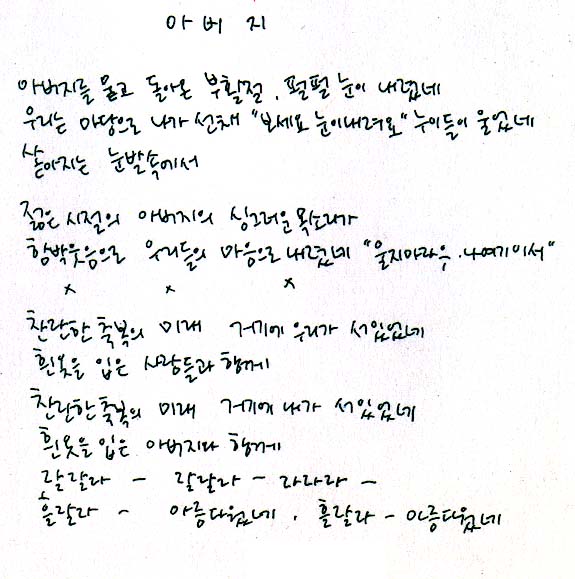 아버지
아버지를 묻고 돌아온 부활절, 펄펄 눈이 내렸네
우리는 마당으로 나가 선채 "보세요 눈이내려요" 누이들이 울었네
쏟아지는 눈발속에서
젊은시절의 아버지의 싱그러운 목소리가
함박웃음으로 우리들의 마음으로 내렸네 "울지마라우. 나여기이서"
x x x
찬란한 축복의 미래 거기에 우리가 서있었네
흰옷을 입은 사람들과 함께
찬란한 축복의 미래 거기에 내가 서있었네
흰옷을 입은 아버지와 함께
랄랄라 - 랄랄라 - 라라라 -
흘랄라 - 아름다웠네. 흘랄라 - 아름다웠네